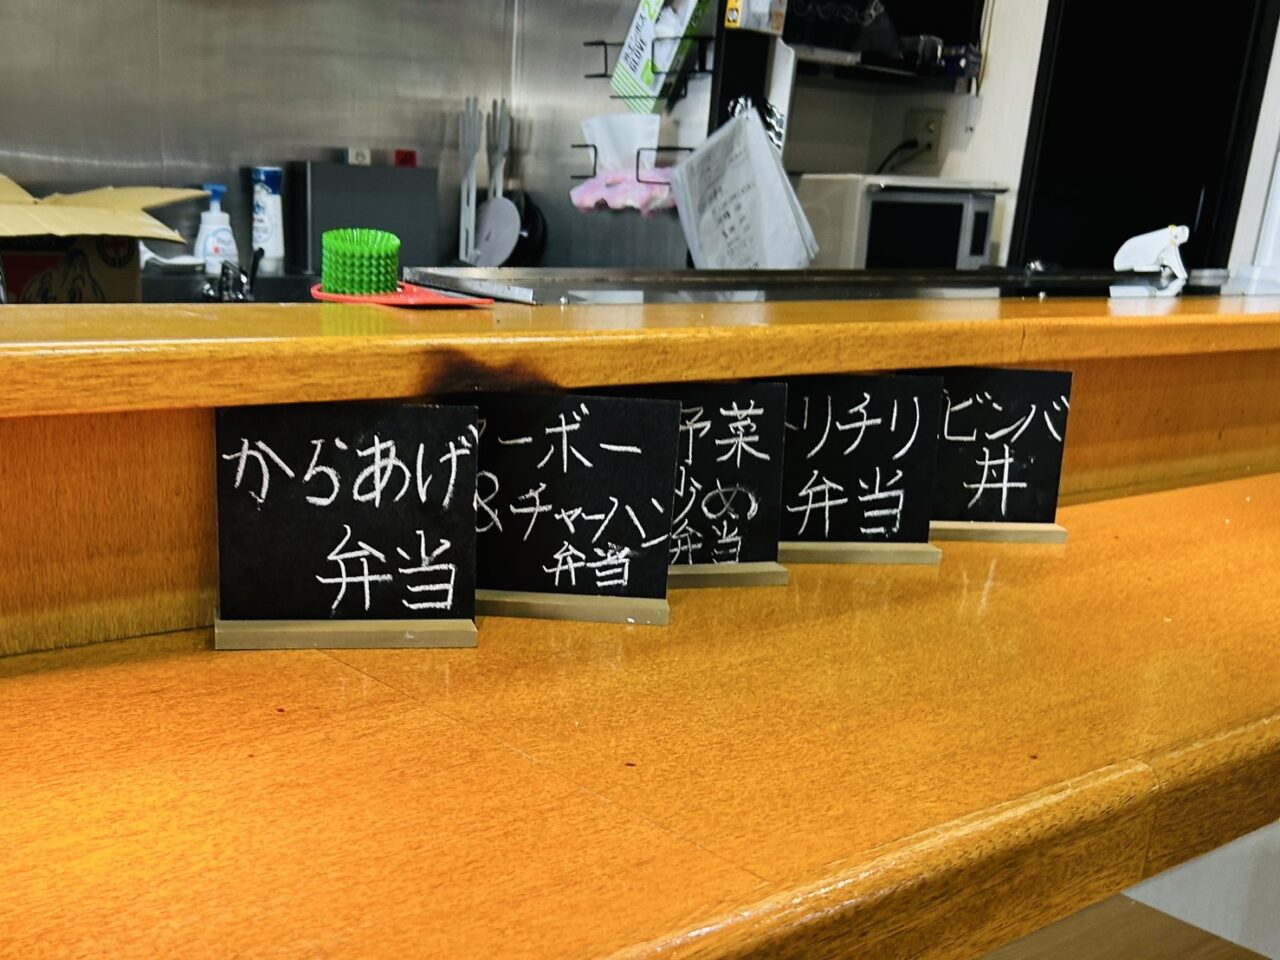 からあげ
弁当
ーボー
&チャーハン
弁当
野菜
炒め
弁当
リチリ
弁当
ビンバ
丼
GLOVE